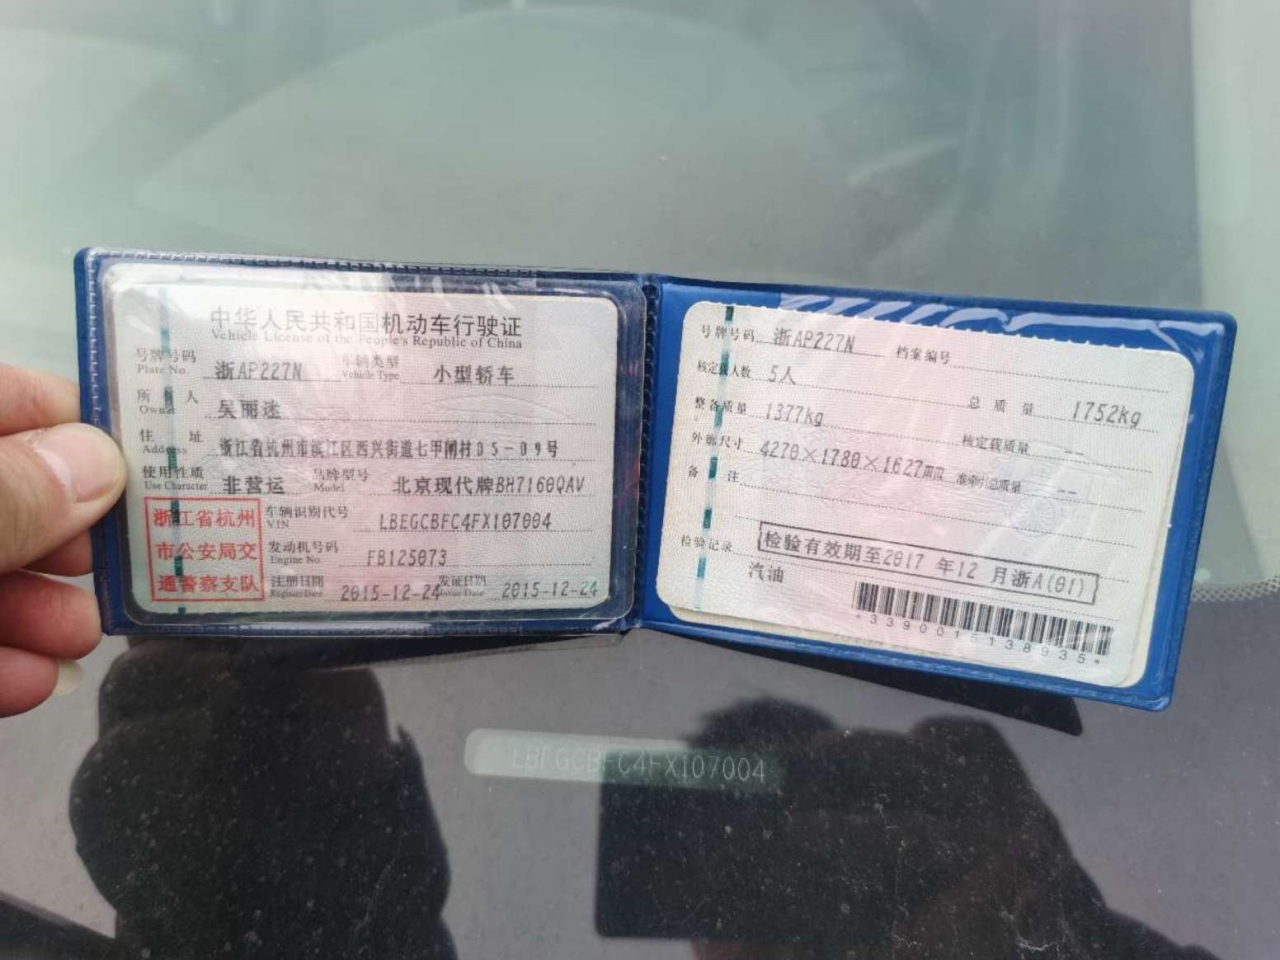 中华人民共和国机动车行驶证
Vehicle License of the People's Republic of China
号牌号码 浙AP227N 车辆类型 小型轿车
Plate No. Vehicle Type
所有人 吴丽迷
Owner
住址 浙江省杭州市滨江区西兴街道七甲闸村D5-D9号
Address
使用性质 非营运 品牌型号 北京现代牌BH7160QAV
Use Character Model
浙江省杭州
市公安局交
通警察支队
车辆识别代号 LBEGCBFC4FX107004
VIN
发动机号码 FB125073
Engine No.
注册日期 2015-12-24 发证日期 2015-12-24
Register Date Issue Date
号牌号码 浙AP227N 档案编号
核定载人数 5人 总质量 1752kg
整备质量 1377kg 核定载质量 --
外廓尺寸 4270×1780×1627mm 准牵引总质量 --
备注
检验记录 检验有效期至2017 年12 月浙A(01)
汽油
*3390015138935*
LBEGCBFC4FX107004